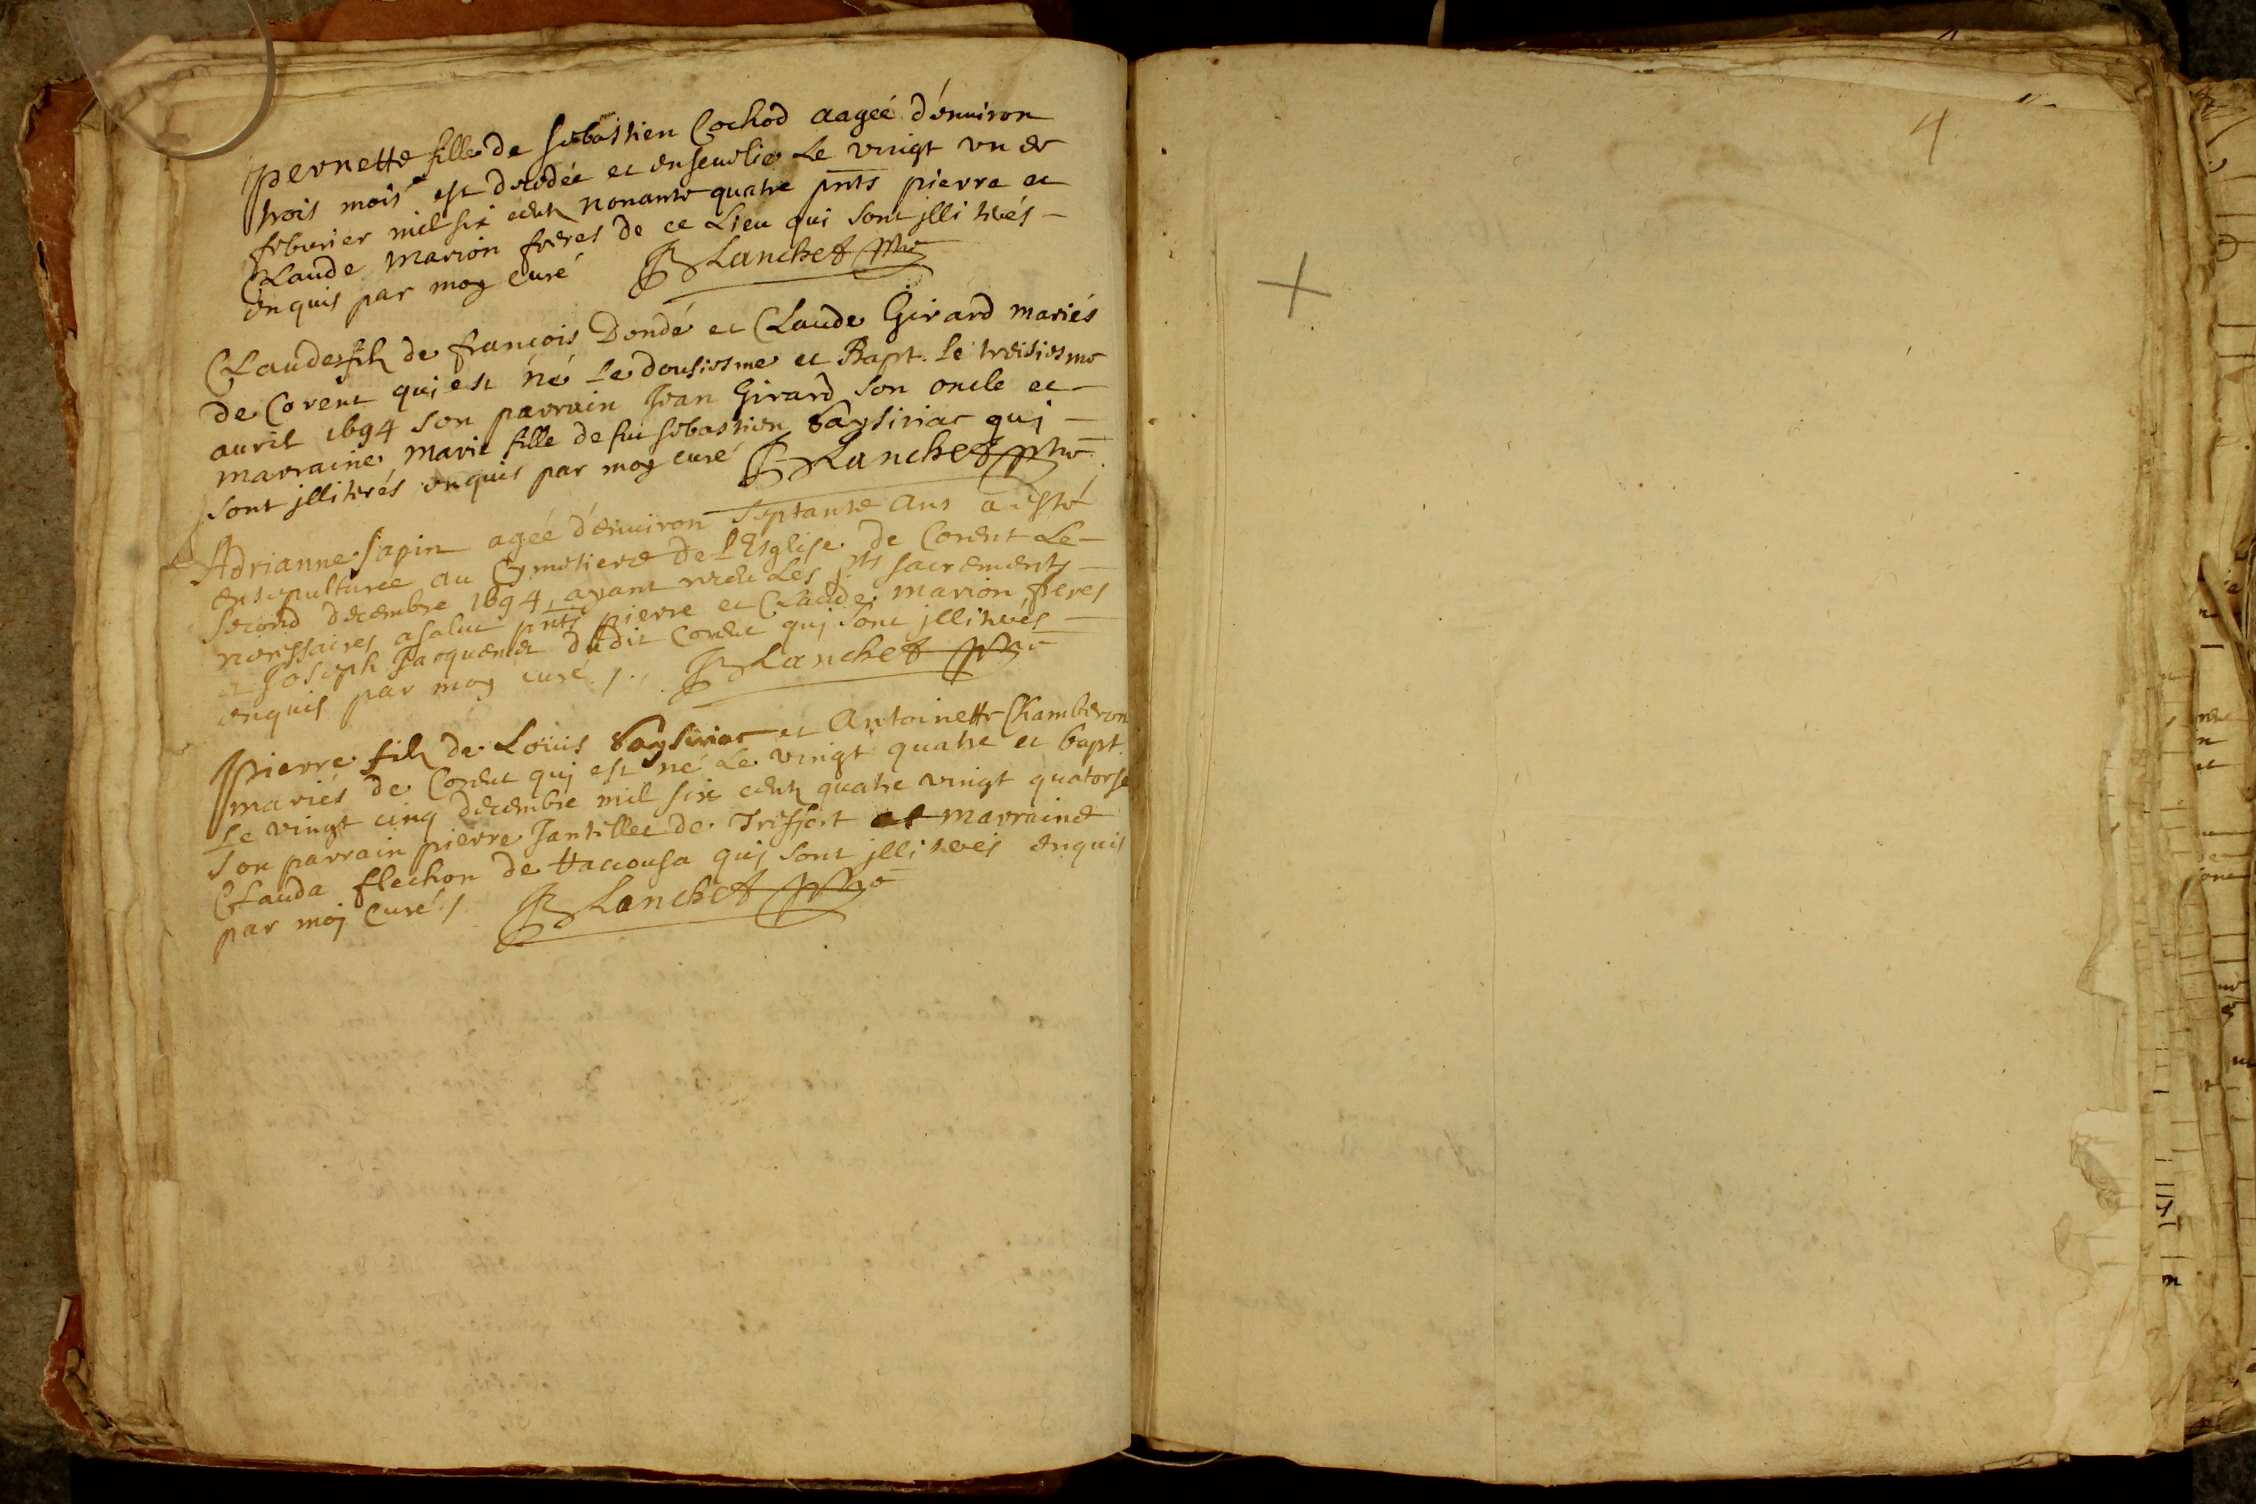 Pernette fille de sebastien Cochod aageé d'enuiron
trois mois est decedeé et enseuelie le vingt vn de
feburier mil six cent nonante quatre pnts pierre et
Claude marion freres de ce Lieu qui sont jlliterés
enquis par moy curé JLanchet ptre
Claude filz de françois Dondé et Claude Girard mariés
de Corent qui est né le dousiesme et Bapt. le treisiesme
auril 1694 son parrain Jean Girard son oncle et
marraine marie fille de feu sebastien Baysiriac qui
sont jlliterés enquis par moy curé JLanchet ptre
Adrianne sapin ageé d'enuiron septante ans a esté
ensepulturee au Cymetiere de l'Esglise de Corent Le
second decembre 1694 ayant receu Les sts sacrements
necessaires a salut pnts pierre et Claude marion freres
et Joseph Jacquemet dudit Corent qui sont jlliterés
enquis par moy curé JLanchet ptre
Pierre filz de Loüis Baysiriac et Antoinette Chamberon
mariés de Corent qui est né Le vingt quatre et bapt.
Le vingt cinq decembre mil six cent quatre vingt quatorse
son parrain pierre Jantillet de Treffort et marraine
Clauda flechon de qui sont jlliterés enquis
par moj Curé JLanchet ptre
4